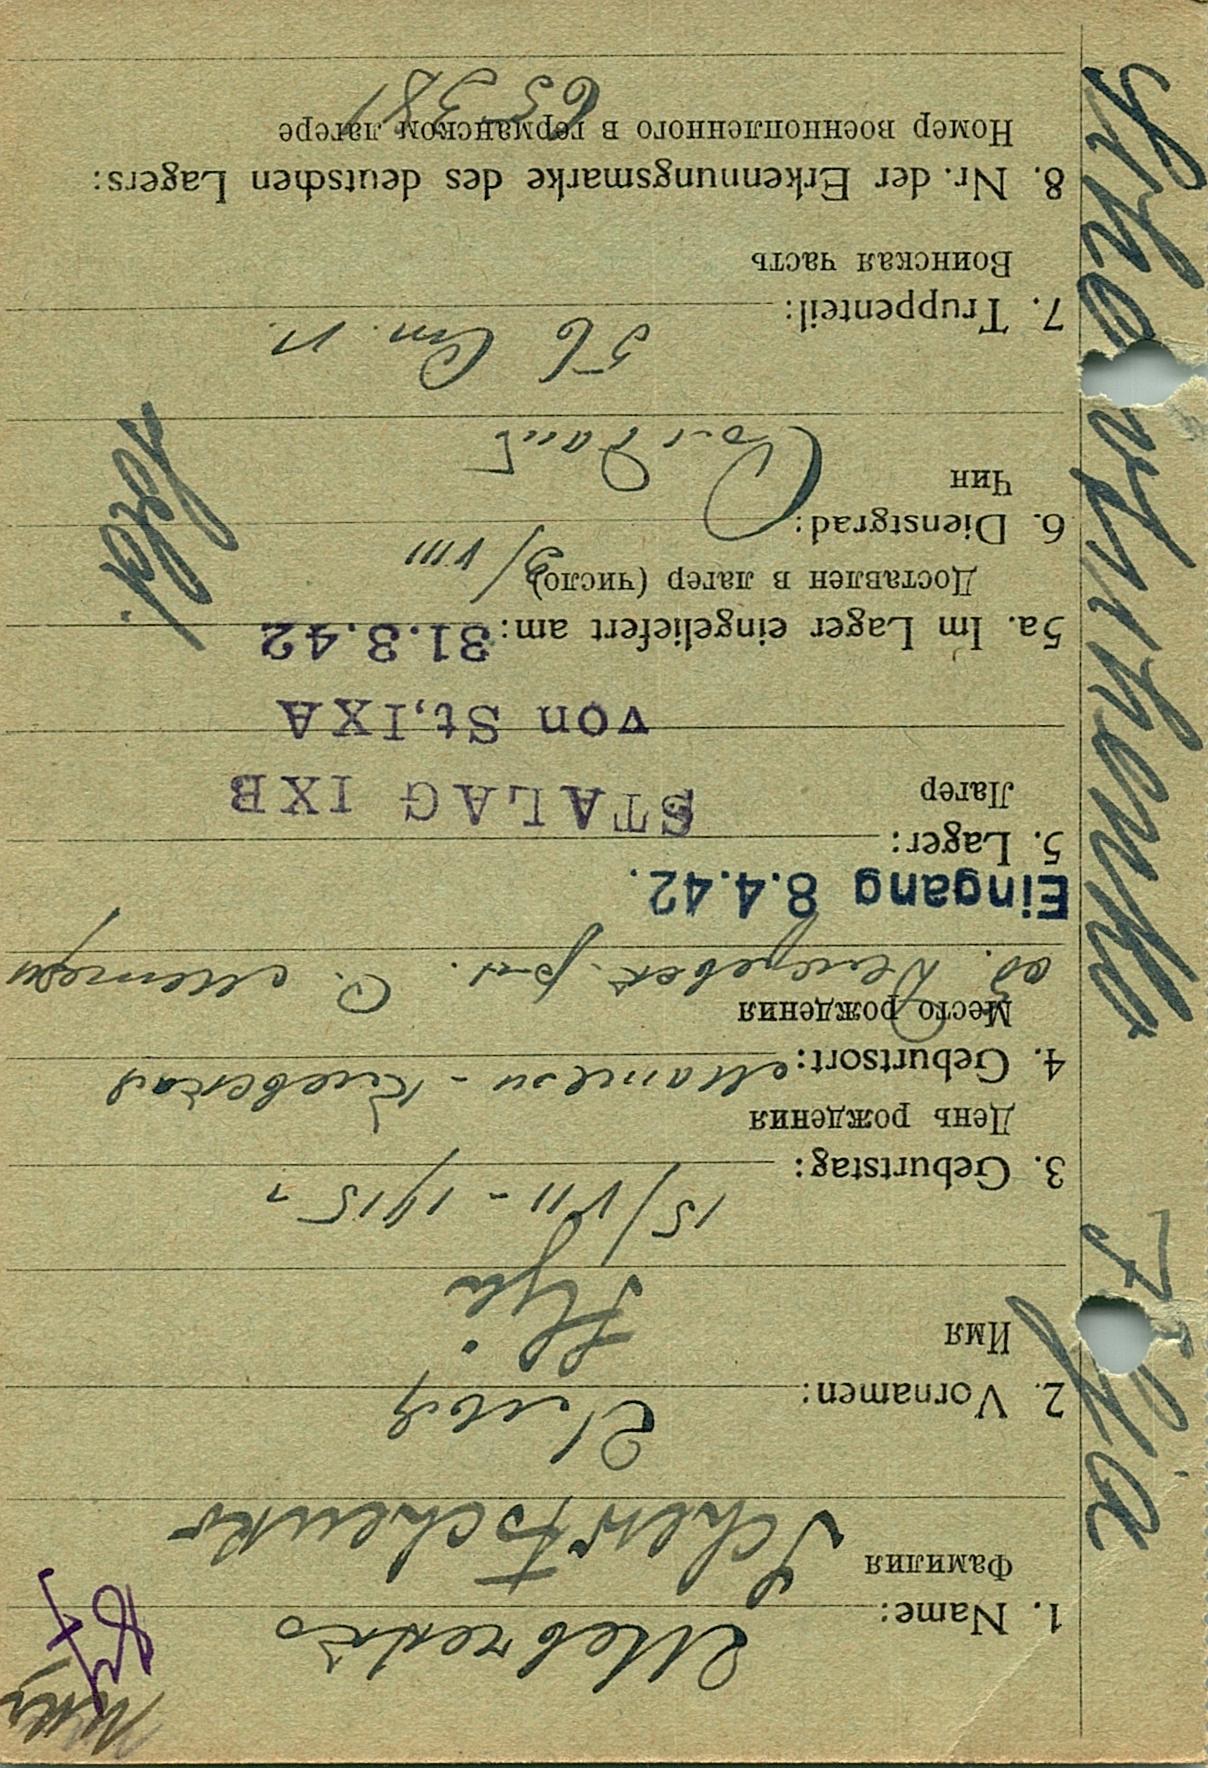 Schewtschenko Ilja
1. Name: Шевченко
Фамилия Schewtschenko
2. Vornamen: Илья
Имя Ilja
3. Geburtstag: 15/VII - 1915 г
День рождения
4. Geburtsort: - Киевская
Место рождения об. С.
Eingang 8.4.42.
5. Lager: STALAG IXB
Лагер
von St,IXA
5a. Im Lager eingeliefert am: 31.3.42
Доставлен в лагер (число) /VIII
6. Dienstgrad: Солдат
Чин
Sold.
7. Truppenteil: 56
Воинская часть
8. Nr. der Erkennungsmarke des deutschen Lagers:
Номер военнопленного в германском лагере
65381